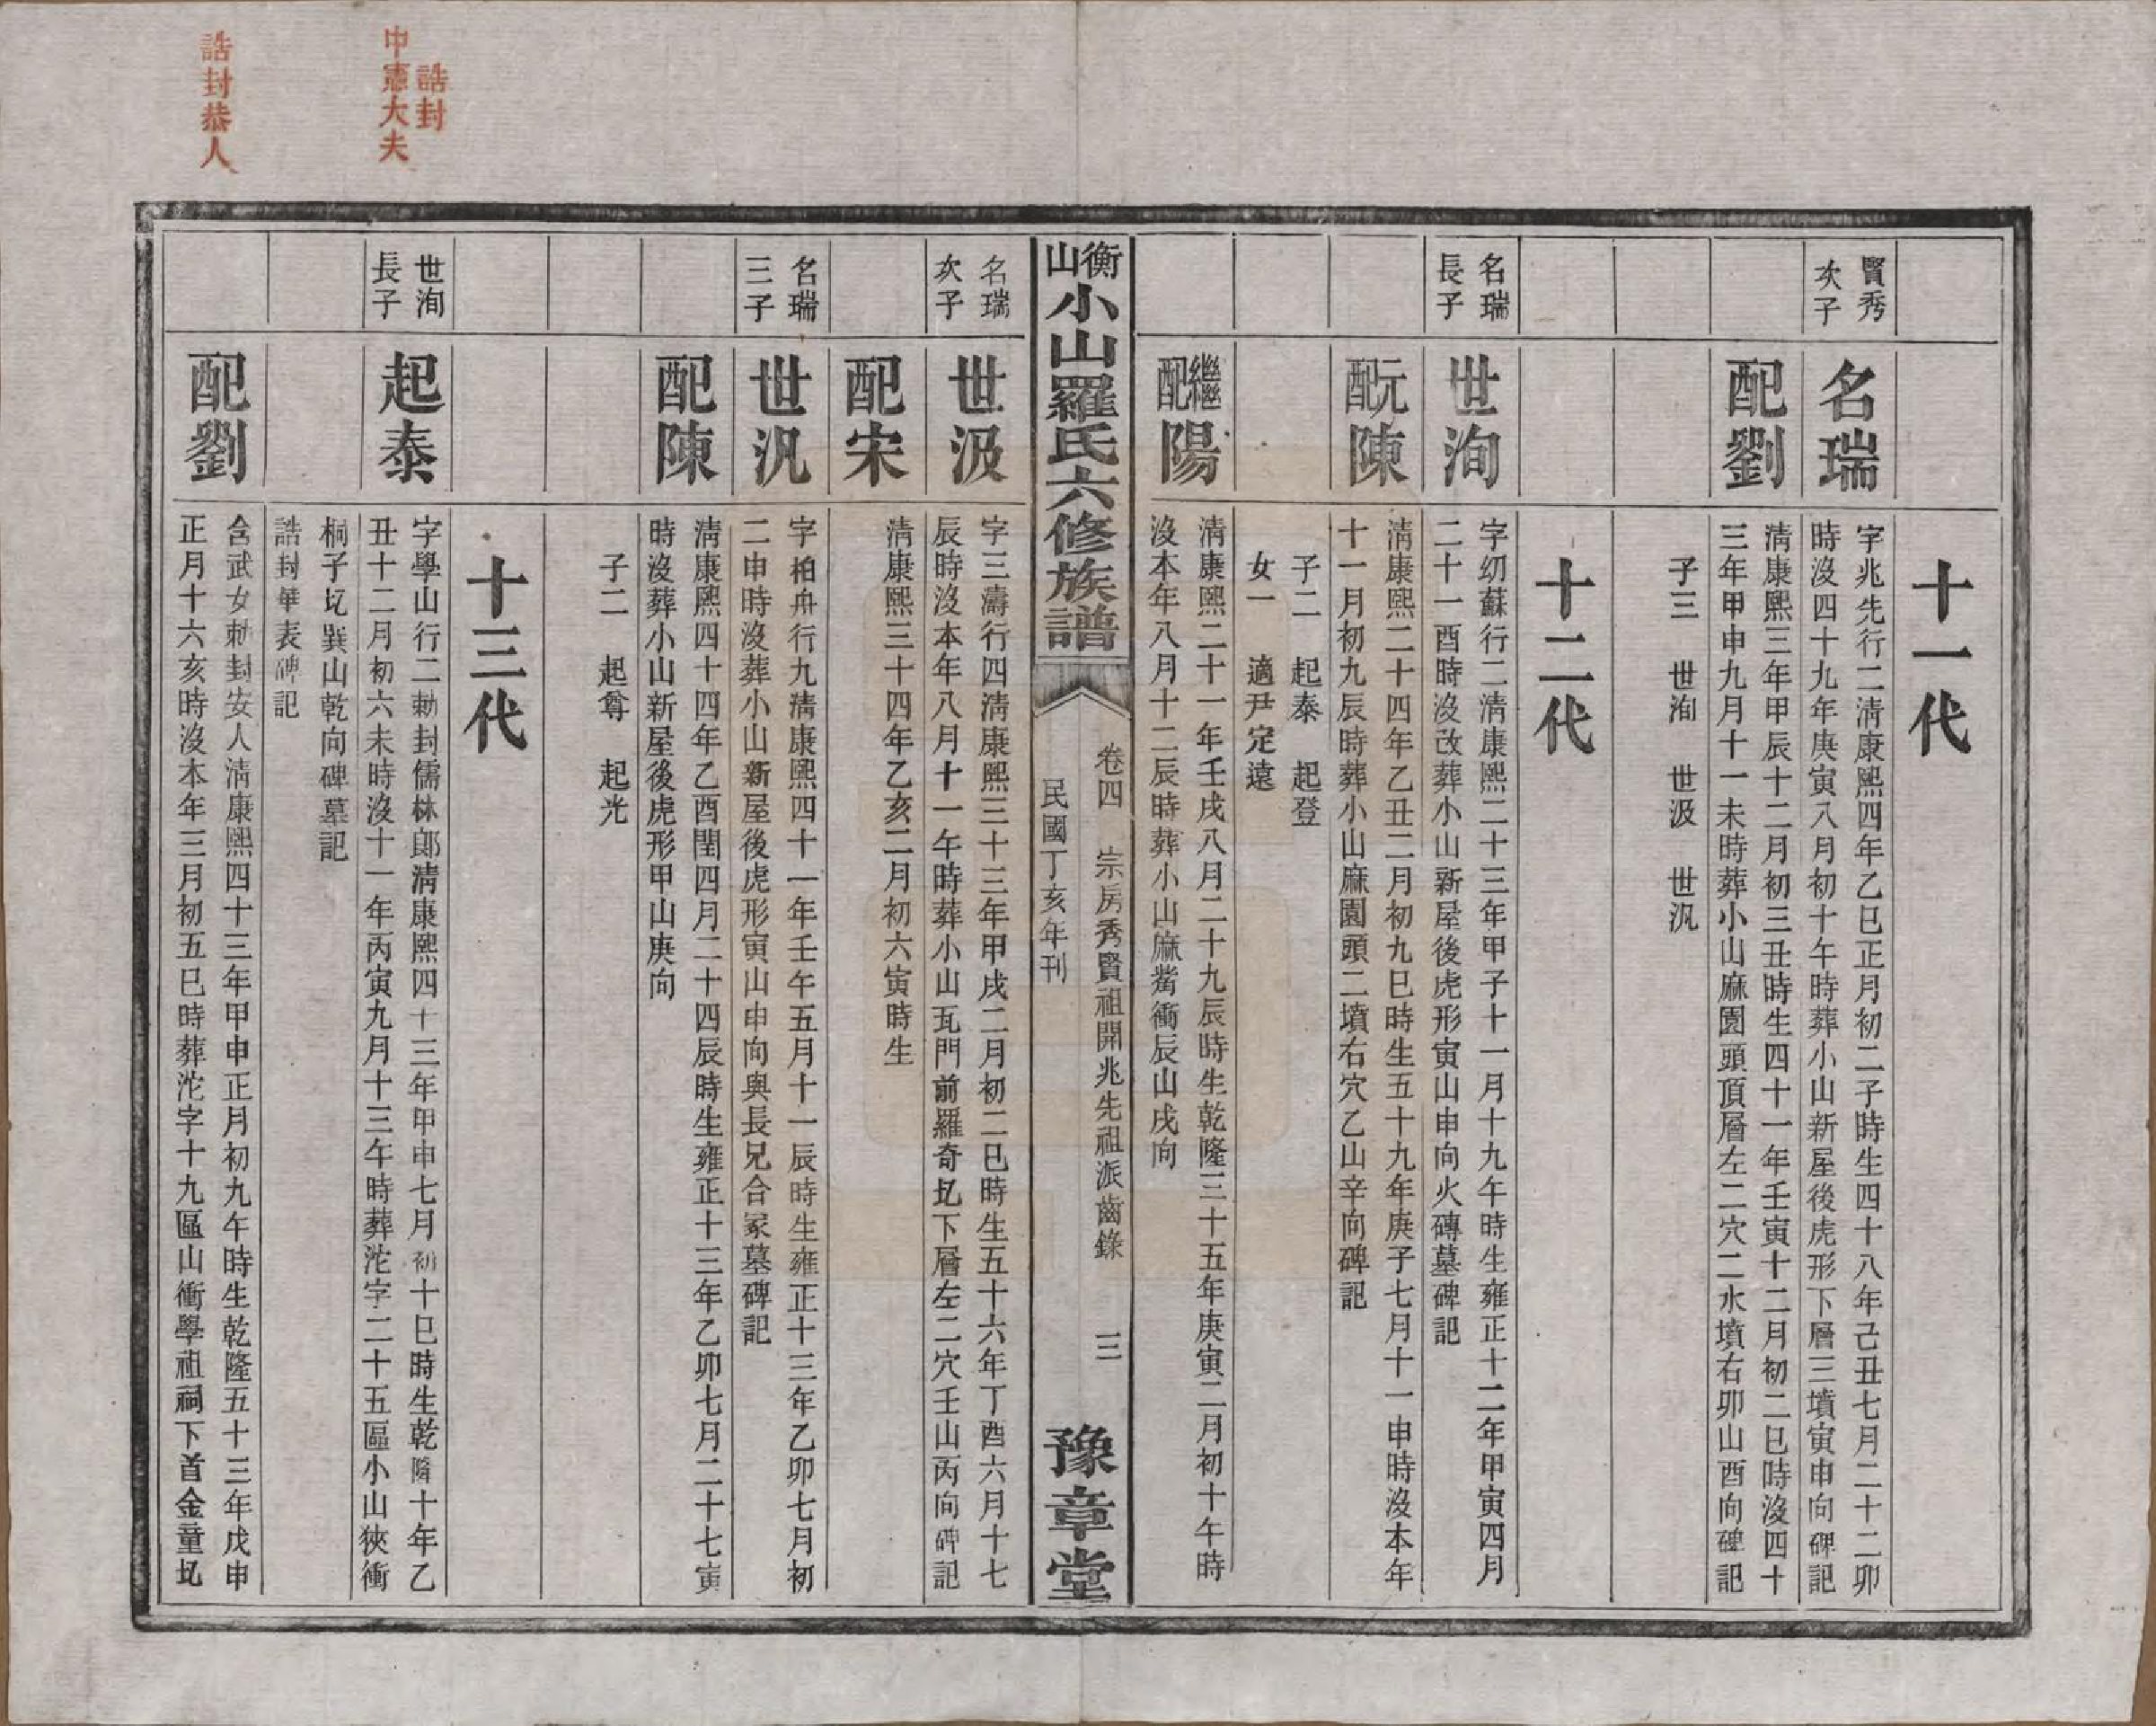 十一代
賢秀
次子
名瑞
字兆先行二清康熙四年乙巳正月初二子時生四十八年己丑七月二十二卯
時沒四十九年庚寅八月初十午時葬小山新屋後虎形下層三墳寅申向碑記
配劉
清康熙三年甲辰十二月初三丑時生四十一年壬寅十二月初二巳時沒四十
三年甲申九月十一未時葬小山麻園頭頂層左二穴二水墳右卯山酉向碑記
子三 世洵 世汲 世汎
十二代
名瑞
長子
世洵
字紉蘇行二清康熙二十三年甲子十一月十九午時生雍正十二年甲寅四月
二十一酉時沒改葬小山新屋後虎形寅山申向火磚墓碑記
元配陳
清康熙二十四年乙丑二月初九巳時生五十九年庚子七月十一申時沒本年
十一月初九辰時葬小山麻園頭二墳右穴乙山辛向碑記
子二 起泰 起登
女一 適尹定遠
繼配陽
清康熙二十一年壬戌八月二十九辰時生乾隆三十五年庚寅二月初十午時
沒本年八月十二辰時葬小山麻鴬衝辰山戌向
衡山小山羅氏六修族譜
卷四 宗房秀賢祖開兆先祖派齒錄 三
民國丁亥年刊
豫章堂
名瑞
次子
世汲
字三濤行四清康熙三十三年甲戌二月初二巳時生五十六年丁酉六月十七
辰時沒本年八月十一午時葬小山瓦門前羅奇圠下層左二穴壬山丙向碑記
配宋
清康熙三十四年乙亥二月初六寅時生
名瑞
三子
世汎
字柏舟行九清康熙四十一年壬午五月十一辰時生雍正十三年乙卯七月初
二申時沒葬小山新屋後虎形寅山申向與長兄合冢墓碑記
配陳
清康熙四十四年乙酉閏四月二十四辰時生雍正十三年乙卯七月二十七寅
時沒葬小山新屋後虎形甲山庚向
子二 起尊 起光
十三代
誥封
中憲大夫
世洵
長子
起泰
字學山行二勅封儒林郎清康熙四十三年甲申七月初十巳時生乾隆十年乙
丑十二月初六未時沒十一年丙寅九月十三午時葬沱字二十五區小山狹衝
桐子圪巽山乾向碑墓記
誥封華表碑記
誥封恭人
配劉
含武女勅封安人清康熙四十三年甲申正月初九午時生乾隆五十三年戊申
正月十六亥時沒本年三月初五巳時葬沱字十九區山衝學祖祠下首金童圠